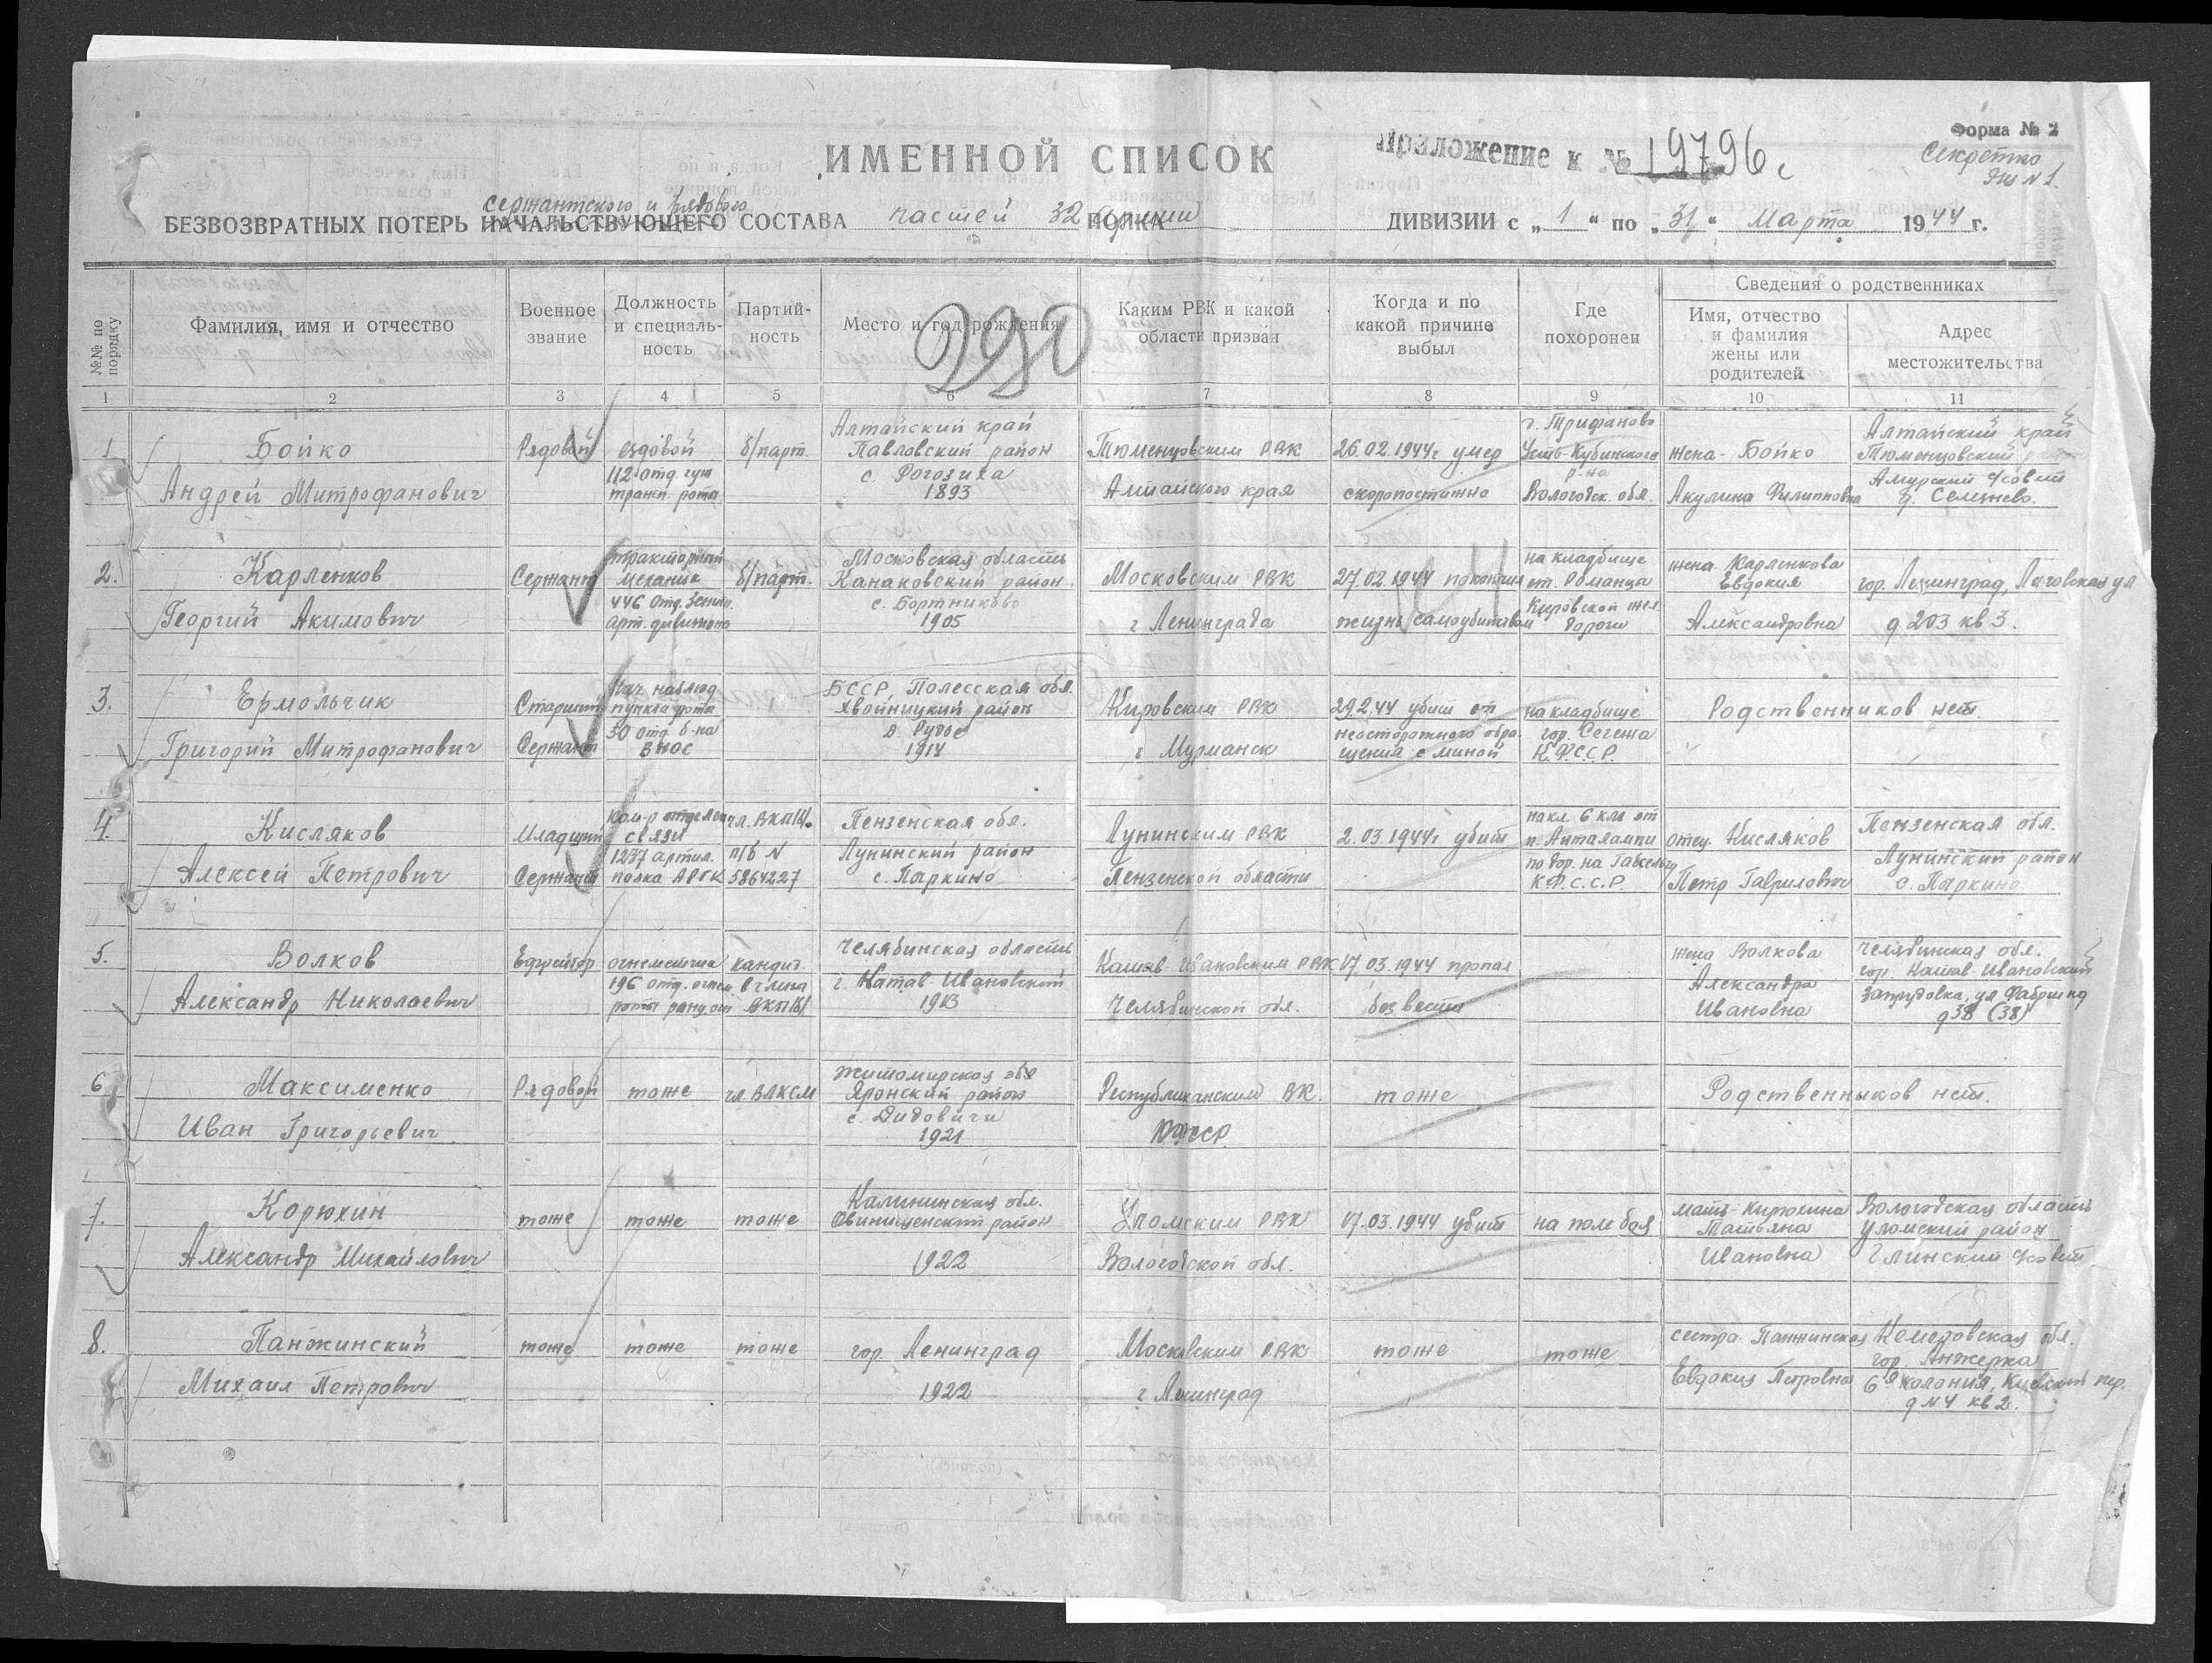 Форма № 2
Секретно
Экз N 1.
ИМЕННОЙ СПИСОК
Приложение к № 19796с
сержантского и рядового
БЕЗВОЗВРАТНЫХ ПОТЕРЬ НАЧАЛЬСТВУЮЩЕГО СОСТАВА частей 32 армии ПОЛКА ДИВИЗИИ с „1“ по „31“ Марта 1944 г.
290
№№ по порядку
Фамилия, имя и отчество
Военное звание
Должность и специаль-ность
Партий-ность
Место и год рождения
Каким РВК и какой области призван
Когда и по какой причине выбыл
Где похоронен
Сведения о родственниках
Имя, отчество и фамилия жены или родителей
Адрес местожительства
1 2 3 4 5 6 7 8 9 10 11
1
Бойко
Андрей Митрофанович
Рядовой
ездовой
112 отд. гуж
трансп. рота
б/парт.
Алтайский край
Павловский район
с. Рогозиха
1893
Тюменцовским РВК
Алтайского края
26.02.1944г умер
скоропостижно
Трифаново
Усть-Кубинского
р-на
Вологодск. обл.
жена - Бойко
Акулина Филипповна
Алтайский край
Тюменцовский
Амурский
2.
Карленков
Георгий Акимович
Сержант
тракторный
механик
446 отд. зенит.
арт. дивизиона
б/парт.
Московская область
Канаковский район
с. Бортниково
1905
Московским РВК
г Ленинграда
27.02.1944 покончил
жизнь самоубийством
на кладбище
ст. Романца
Кировской жел.
дороги
жена Карленкова
Евдокия
Александровна
гор. Ленинград, Лиговская ул
д 203 кв 3.
3.
Ермольчик
Григорий Митрофанович
Старший
Сержант
Нач. наблюд
пункта рота
30 отд. б-на
ВНОС
БССР, Полесская обл.
Хвойницкий район
д. Рудое
1914
Кировским РВК
г Мурманск
29.2.44 убит от
неосторожного обра-
щения с миной
на кладбище
гор. Сегежа
К.Ф.С.С.Р.
Родственников нет.
4.
Кисляков
Алексей Петрович
Младший
Сержант
Ком-р отделен
связи
1237 артил.
полка АРГК
чл. ВКП/б/.
п/б N
5864227
Пензенская обл.
Лунинский район
с. Паркино
Лунинским РВК
Пензенской области
2.03.1944г убит
6 км от
К.Ф.С.С.Р.
отец Кисляков
Петр Гаврилович
Пензенская обл.
Лунинский район
с. Паркино
5.
Волков
Александр Николаевич
Ефрейтор
огнеметчик
196 отд. огнем
роты ранц. ог
кандид.
в члены
ВКП/б/
Челябинская область
г. Катав-Ивановский
1913
Катав-Ивановским РВК
Челябинской обл.
07.03.1944 пропал
без вести
жена Волкова
Александра
Ивановна
Челябинская обл.
гор. Катав-Ивановский
Запрудовка, ул Фабрична
д 38 (38)
6
Максименко
Иван Григорьевич
Рядовой
тоже
чл. ВЛКСМ
Житомирская обл
Ярунский район
с. Дидовичи
1921
Республиканский ВК.
КФССР
тоже
Родственников нет.
7.
Корюхин
Александр Михайлович
тоже
тоже
тоже
Калининская обл.
Овинищенский район
1922
Уломским РВК
Вологодской обл.
07.03.1944 убит
на поле боя
мать - Корюхина
Татьяна
Ивановна
Вологодская область
Уломский район
Глинский с/совет
8.
Панжинский
Михаил Петрович
тоже
тоже
тоже
гор. Ленинград
1922
Московским РВК
г Ленинград
тоже
тоже
сестра Панжинская
Евдокия Петровна
Кемеровская обл.
гор. Анжерка
6я колония, Киевский пер.
д N 4 кв 2.